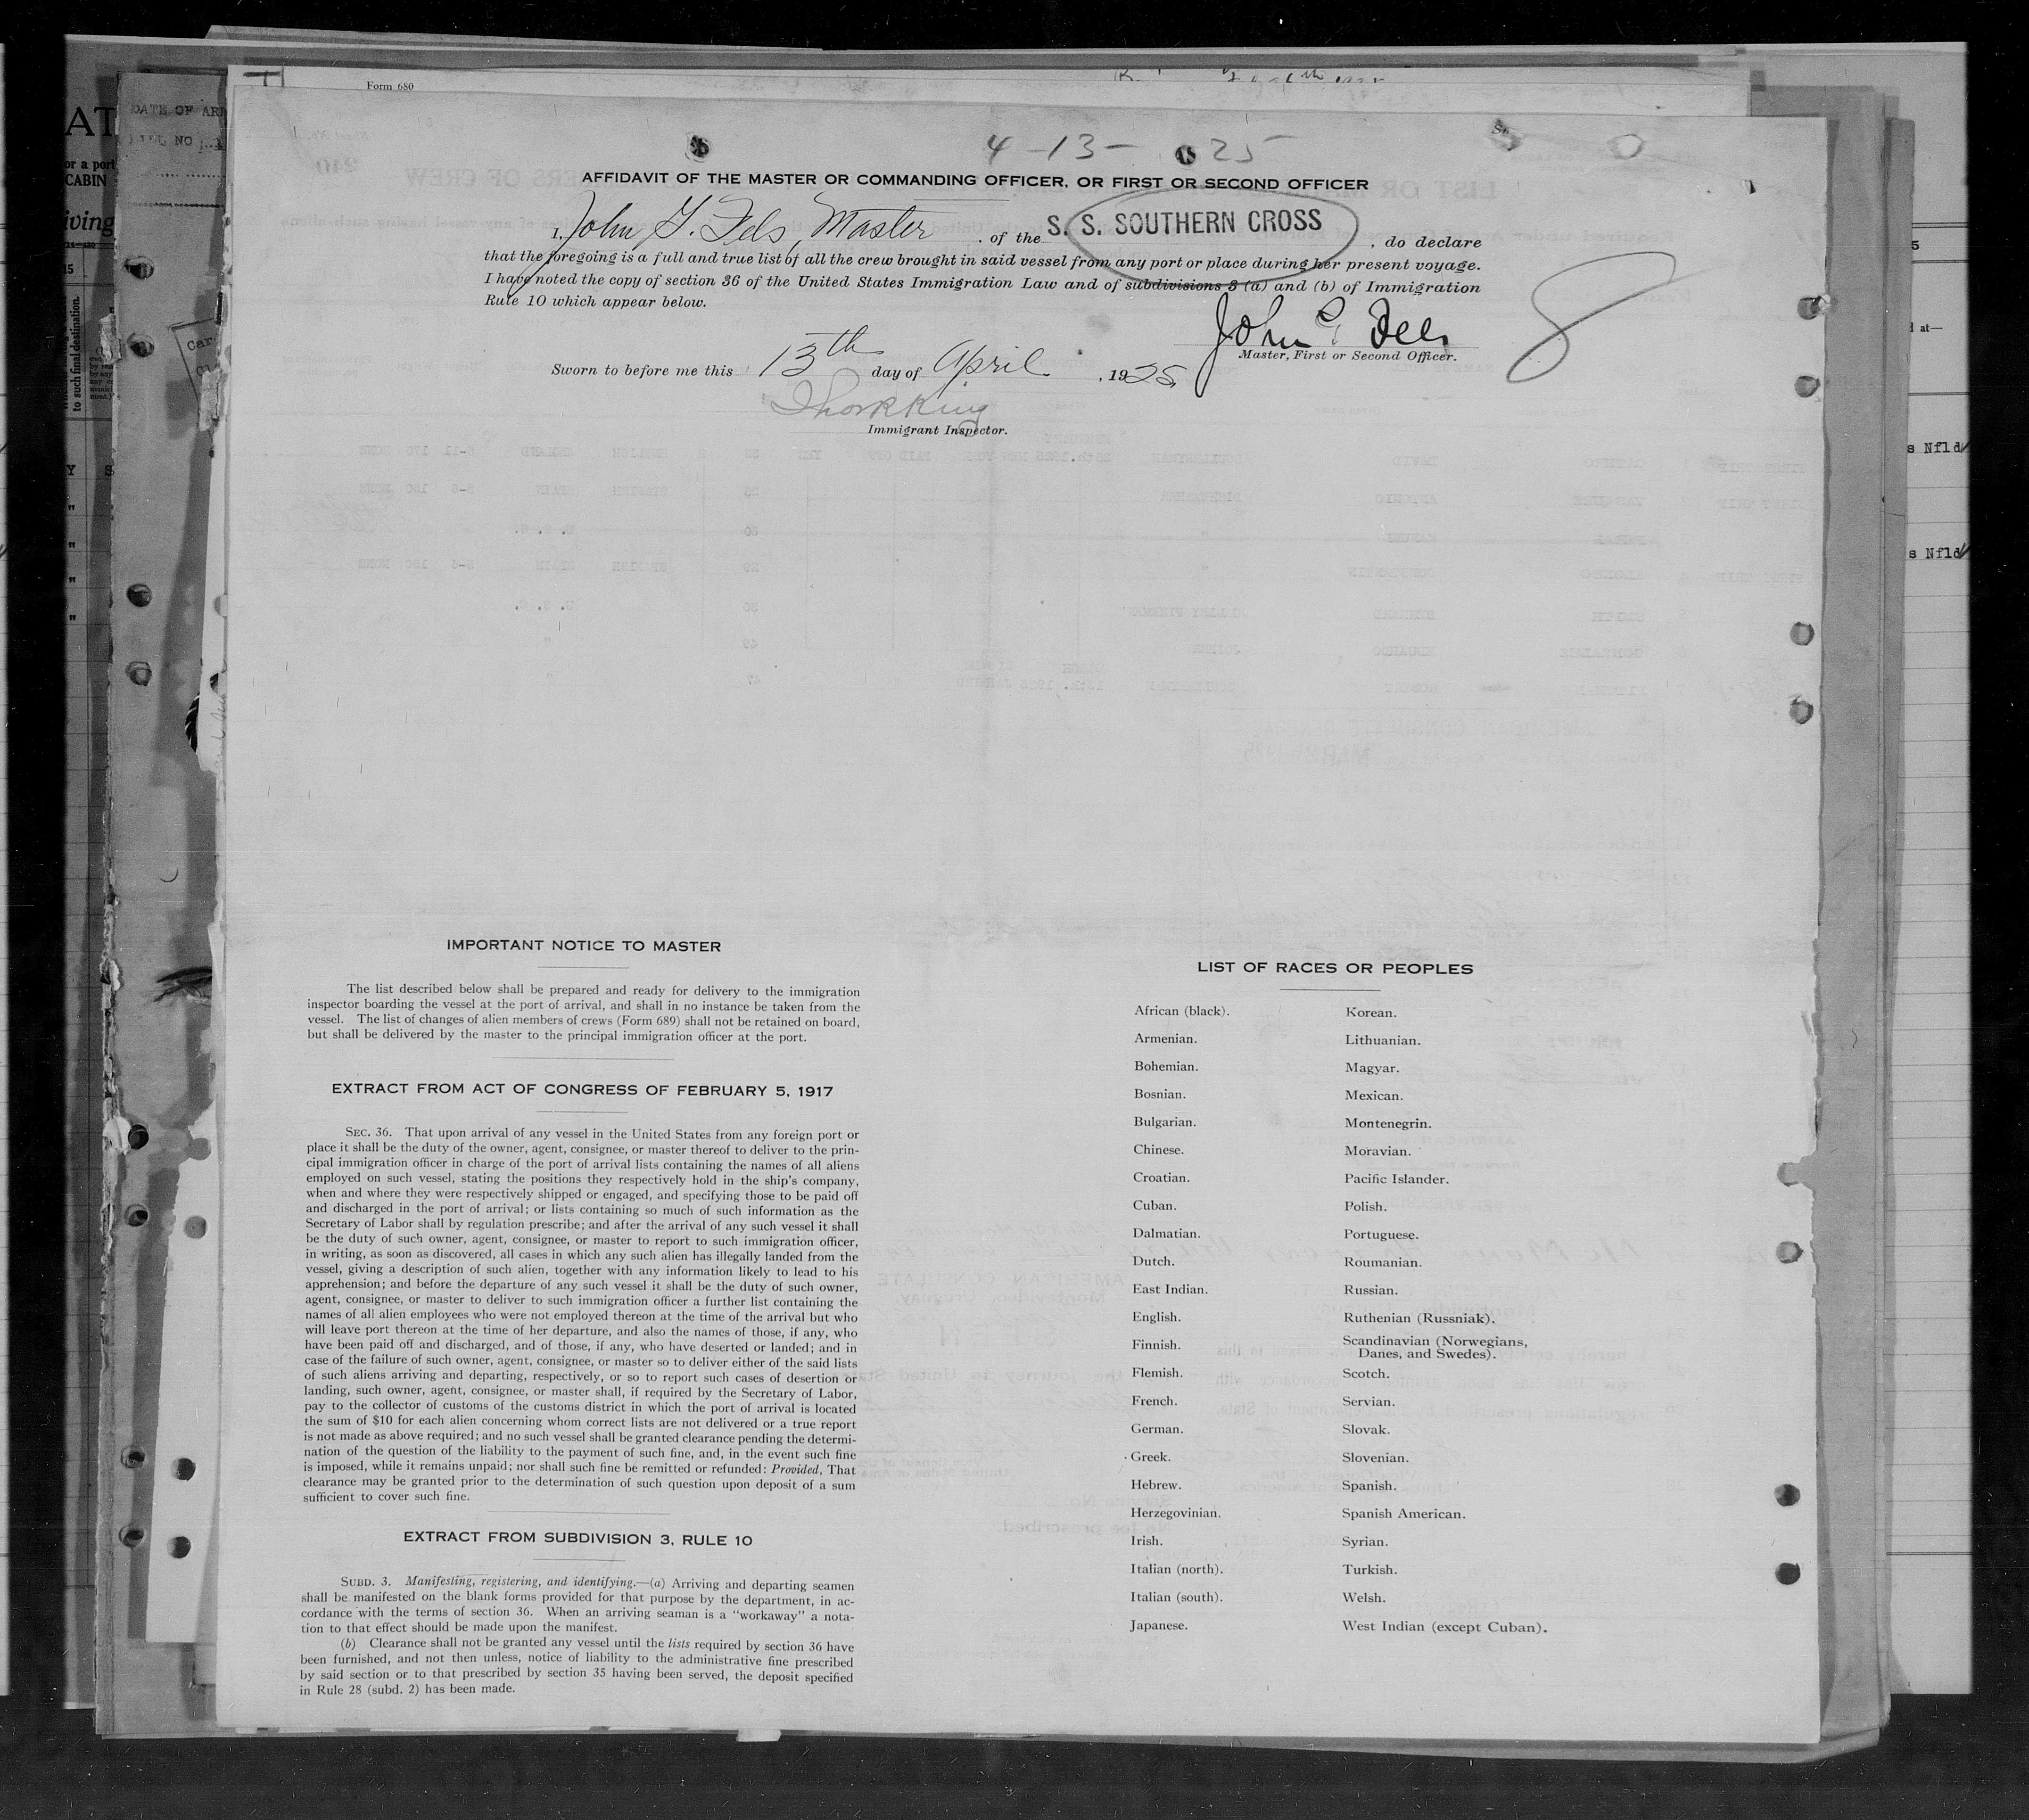 Form 680
DATE OF ARR
4-13-25
AFFIDAVIT OF THE MASTER OR COMMANDING OFFICER, OR FIRST OR SECOND OFFICER
I, John Fels, Master, of the S. S. SOUTHERN CROSS, do declare
that the foregoing is a full and true list of all the crew brought in said vessel from any port or place during her present voyage.
I have noted the copy of section 36 of the United States Immigration Law and of subdivisions 3 (a) and (b) of Immigration
Rule 10 which appear below.
8
John Fels
Master, First or Second Officer.
Sworn to before me this 13th day of April, 1925
Immigrant Inspector.
s Nfld
s Nfld
IMPORTANT NOTICE TO MASTER
The list described below shall be prepared and ready for delivery to the immigration
inspector boarding the vessel at the port of arrival, and shall in no instance be taken from the
vessel. The list of changes of alien members of crews (Form 689) shall not be retained on board,
but shall be delivered by the master to the principal immigration officer at the port.
EXTRACT FROM ACT OF CONGRESS OF FEBRUARY 5, 1917
SEC. 36. That upon arrival of any vessel in the United States from any foreign port or
place it shall be the duty of the owner, agent, consignee, or master thereof to deliver to the prin-
cipal immigration officer in charge of the port of arrival lists containing the names of all aliens
employed on such vessel, stating the positions they respectively hold in the ship's company,
when and where they were respectively shipped or engaged, and specifying those to be paid off
and discharged in the port of arrival; or lists containing so much of such information as the
Secretary of Labor shall by regulation prescribe; and after the arrival of any such vessel it shall
be the duty of such owner, agent, consignee, or master to report to such immigration officer,
in writing, as soon as discovered, all cases in which any such alien has illegally landed from the
vessel, giving a description of such alien, together with any information likely to lead to his
apprehension; and before the departure of any such vessel it shall be the duty of such owner,
agent, consignee, or master to deliver to such immigration officer a further list containing the
names of all alien employees who were not employed thereon at the time of the arrival but who
will leave port thereon at the time of her departure, and also the names of those, if any, who
have been paid off and discharged, and of those, if any, who have deserted or landed; and in
case of the failure of such owner, agent, consignee, or master so to deliver either of the said lists
of such aliens arriving and departing, respectively, or so to report such cases of desertion or
landing, such owner, agent, consignee, or master shall, if required by the Secretary of Labor,
pay to the collector of customs of the customs district in which the port of arrival is located
the sum of $10 for each alien concerning whom correct lists are not delivered or a true report
is not made as above required; and no such vessel shall be granted clearance pending the determi-
nation of the question of the liability to the payment of such fine, and, in the event such fine
is imposed, while it remains unpaid; nor shall such fine be remitted or refunded: Provided, That
clearance may be granted prior to the determination of such question upon deposit of a sum
sufficient to cover such fine.
EXTRACT FROM SUBDIVISION 3, RULE 10
SUBD. 3. Manifesting, registering, and identifying.—(a) Arriving and departing seamen
shall be manifested on the blank forms provided for that purpose by the department, in ac-
cordance with the terms of section 36. When an arriving seaman is a "workaway" a nota-
tion to that effect should be made upon the manifest.
(b) Clearance shall not be granted any vessel until the lists required by section 36 have
been furnished, and not then unless, notice of liability to the administrative fine prescribed
by said section or to that prescribed by section 35 having been served, the deposit specified
in Rule 28 (subd. 2) has been made.
LIST OF RACES OR PEOPLES
African (black).
Armenian.
Bohemian.
Bosnian.
Bulgarian.
Chinese.
Croatian.
Cuban.
Dalmatian.
Dutch.
East Indian.
English.
Finnish.
Flemish.
French.
German.
Greek.
Hebrew.
Herzegovinian.
Irish.
Italian (north).
Italian (south).
Japanese.
Korean.
Lithuanian.
Magyar.
Mexican.
Montenegrin.
Moravian.
Pacific Islander.
Polish.
Portuguese.
Roumanian.
Russian.
Ruthenian (Russniak).
Scandinavian (Norwegians,
Danes, and Swedes).
Scotch.
Servian.
Slovak.
Slovenian.
Spanish.
Spanish American.
Syrian.
Turkish.
Welsh.
West Indian (except Cuban).